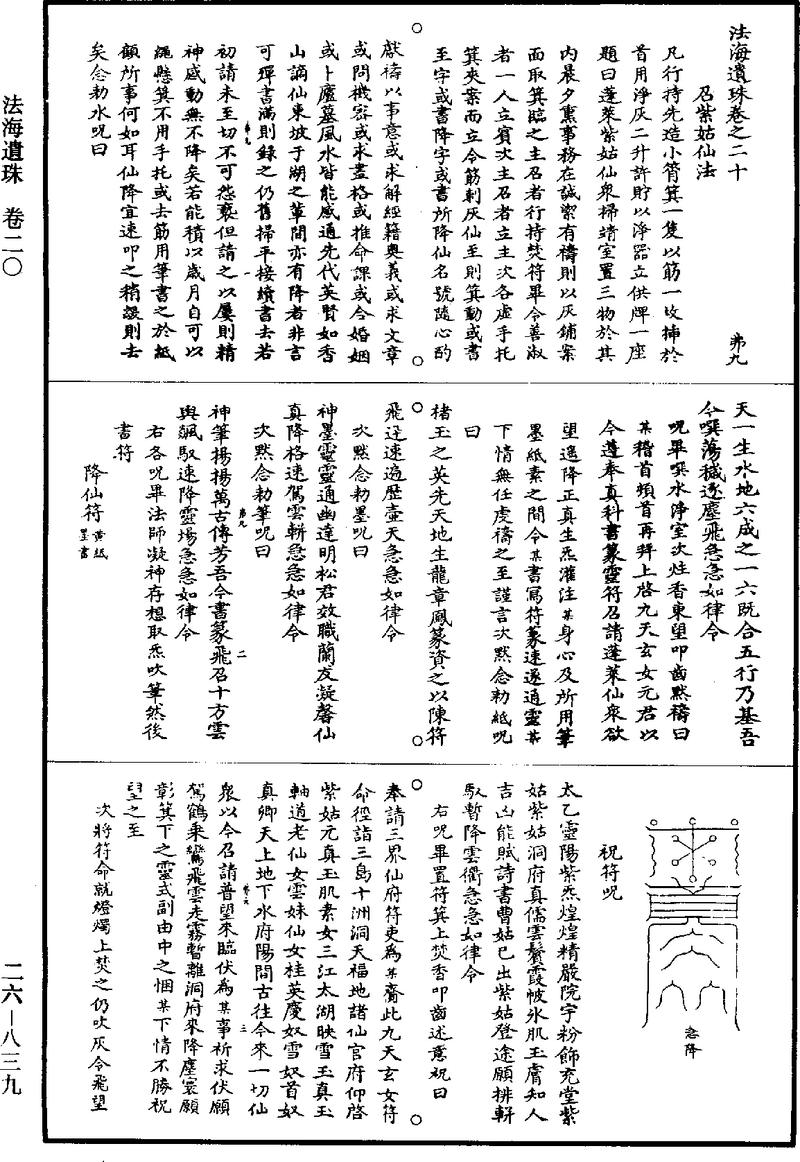 法海遺珠卷之二十
弗九
召紫姑仙法
凡行持先造小筲箕一隻以筋一枚揷於
首用淨灰二升許貯以淨器立供牌一座
題曰蓬萊紫姑仙衆掃靖室置三物於其
內晨夕熏事務在誠潔有禱則以灰鋪案
面取箕臨之主召者行持焚符畢令善淑
者一人立賓次主召者立主次各虛手托
箕夾案而立令筋剌灰仙至則箕動或書
至字或書降字或書所降仙名號隨心酌
獻禱以事意或求解經籍奧義或求文章
或問機密或求畫格或推命課或合婚姻
或卜廬墓風水皆能感通先代英賢如香
山謫仙東坡于湖之輩間亦有降者非言
可殫書滿則錄之仍舊掃平接續書去若
初請未至切不可怨褻但請之以屢則精
神感動無不降矣若能積以歲月自可以
繩懸箕不用手托或去筋用筆書之於紙
顧所事何如耳仙降宜速叩之稍緩則去
矣念勑水呪曰
天一生水地六成之一六既合五行乃基吾
今噀蕩穢逐塵飛急急如律令
呪畢噀水淨室次炷香東望叩齒默禱曰
某稽首頻首再拜上啓九天玄女元君以
今謹奉真科書篆靈符召請蓬萊仙衆欲
望遥降正真生炁灌注某身心及所用筆
墨紙素之間令某書寫符篆速遂通靈某
下情無任虔禱之至謹言次默念勑紙呪
曰
楮玉之英先天地生龍章鳳篆資之以陳符
飛迅速遍歷壺天急急如律令
次默念勑墨呪曰
神墨靈靈通幽達明松君效職蘭友凝馨仙
真降格速駕雲軿急急如律令
次默念勑筆呪曰
神筆揚揚萬古傳芳吾今書篆飛召十方雲
輿飈馭速降靈場急急如律令
右各呪畢法師凝神存想取炁吹筆然後
書符
降仙符 黃紙墨書
急降
祝符呪
太乙靈陽紫炁煌煌精嚴院宇粉飾充堂紫
姑紫姑洞府真儒雲鬢霞帔氷肌玉膚知人
吉凶能賦詩書曹姑已出紫姑登途願排軿
馭暫降雲衢急急如律令
右呪畢置符箕上焚香叩齒述意祝曰
奉請三界仙府符吏為某齎此九天玄女符
命徑詣三島十洲洞天福地諸仙官府仰啓
紫姑元真玉肌素女三江太湖映雪玉真玉
軸道老仙女雲妹仙女桂英慶奴雪奴首奴
真卿天上地下水府陽間古往今來一切仙
衆以今召請普望來臨伏為某事祈求伏願
駕鶴乘鸞飛雲走霧暫離洞府來降塵寰願
彰箕下之靈式副由中之悃某下情不勝祝
望之至
次將符命就燈燭上焚之仍吹灰令飛望
法海遺珠 卷二〇
二六—八三九